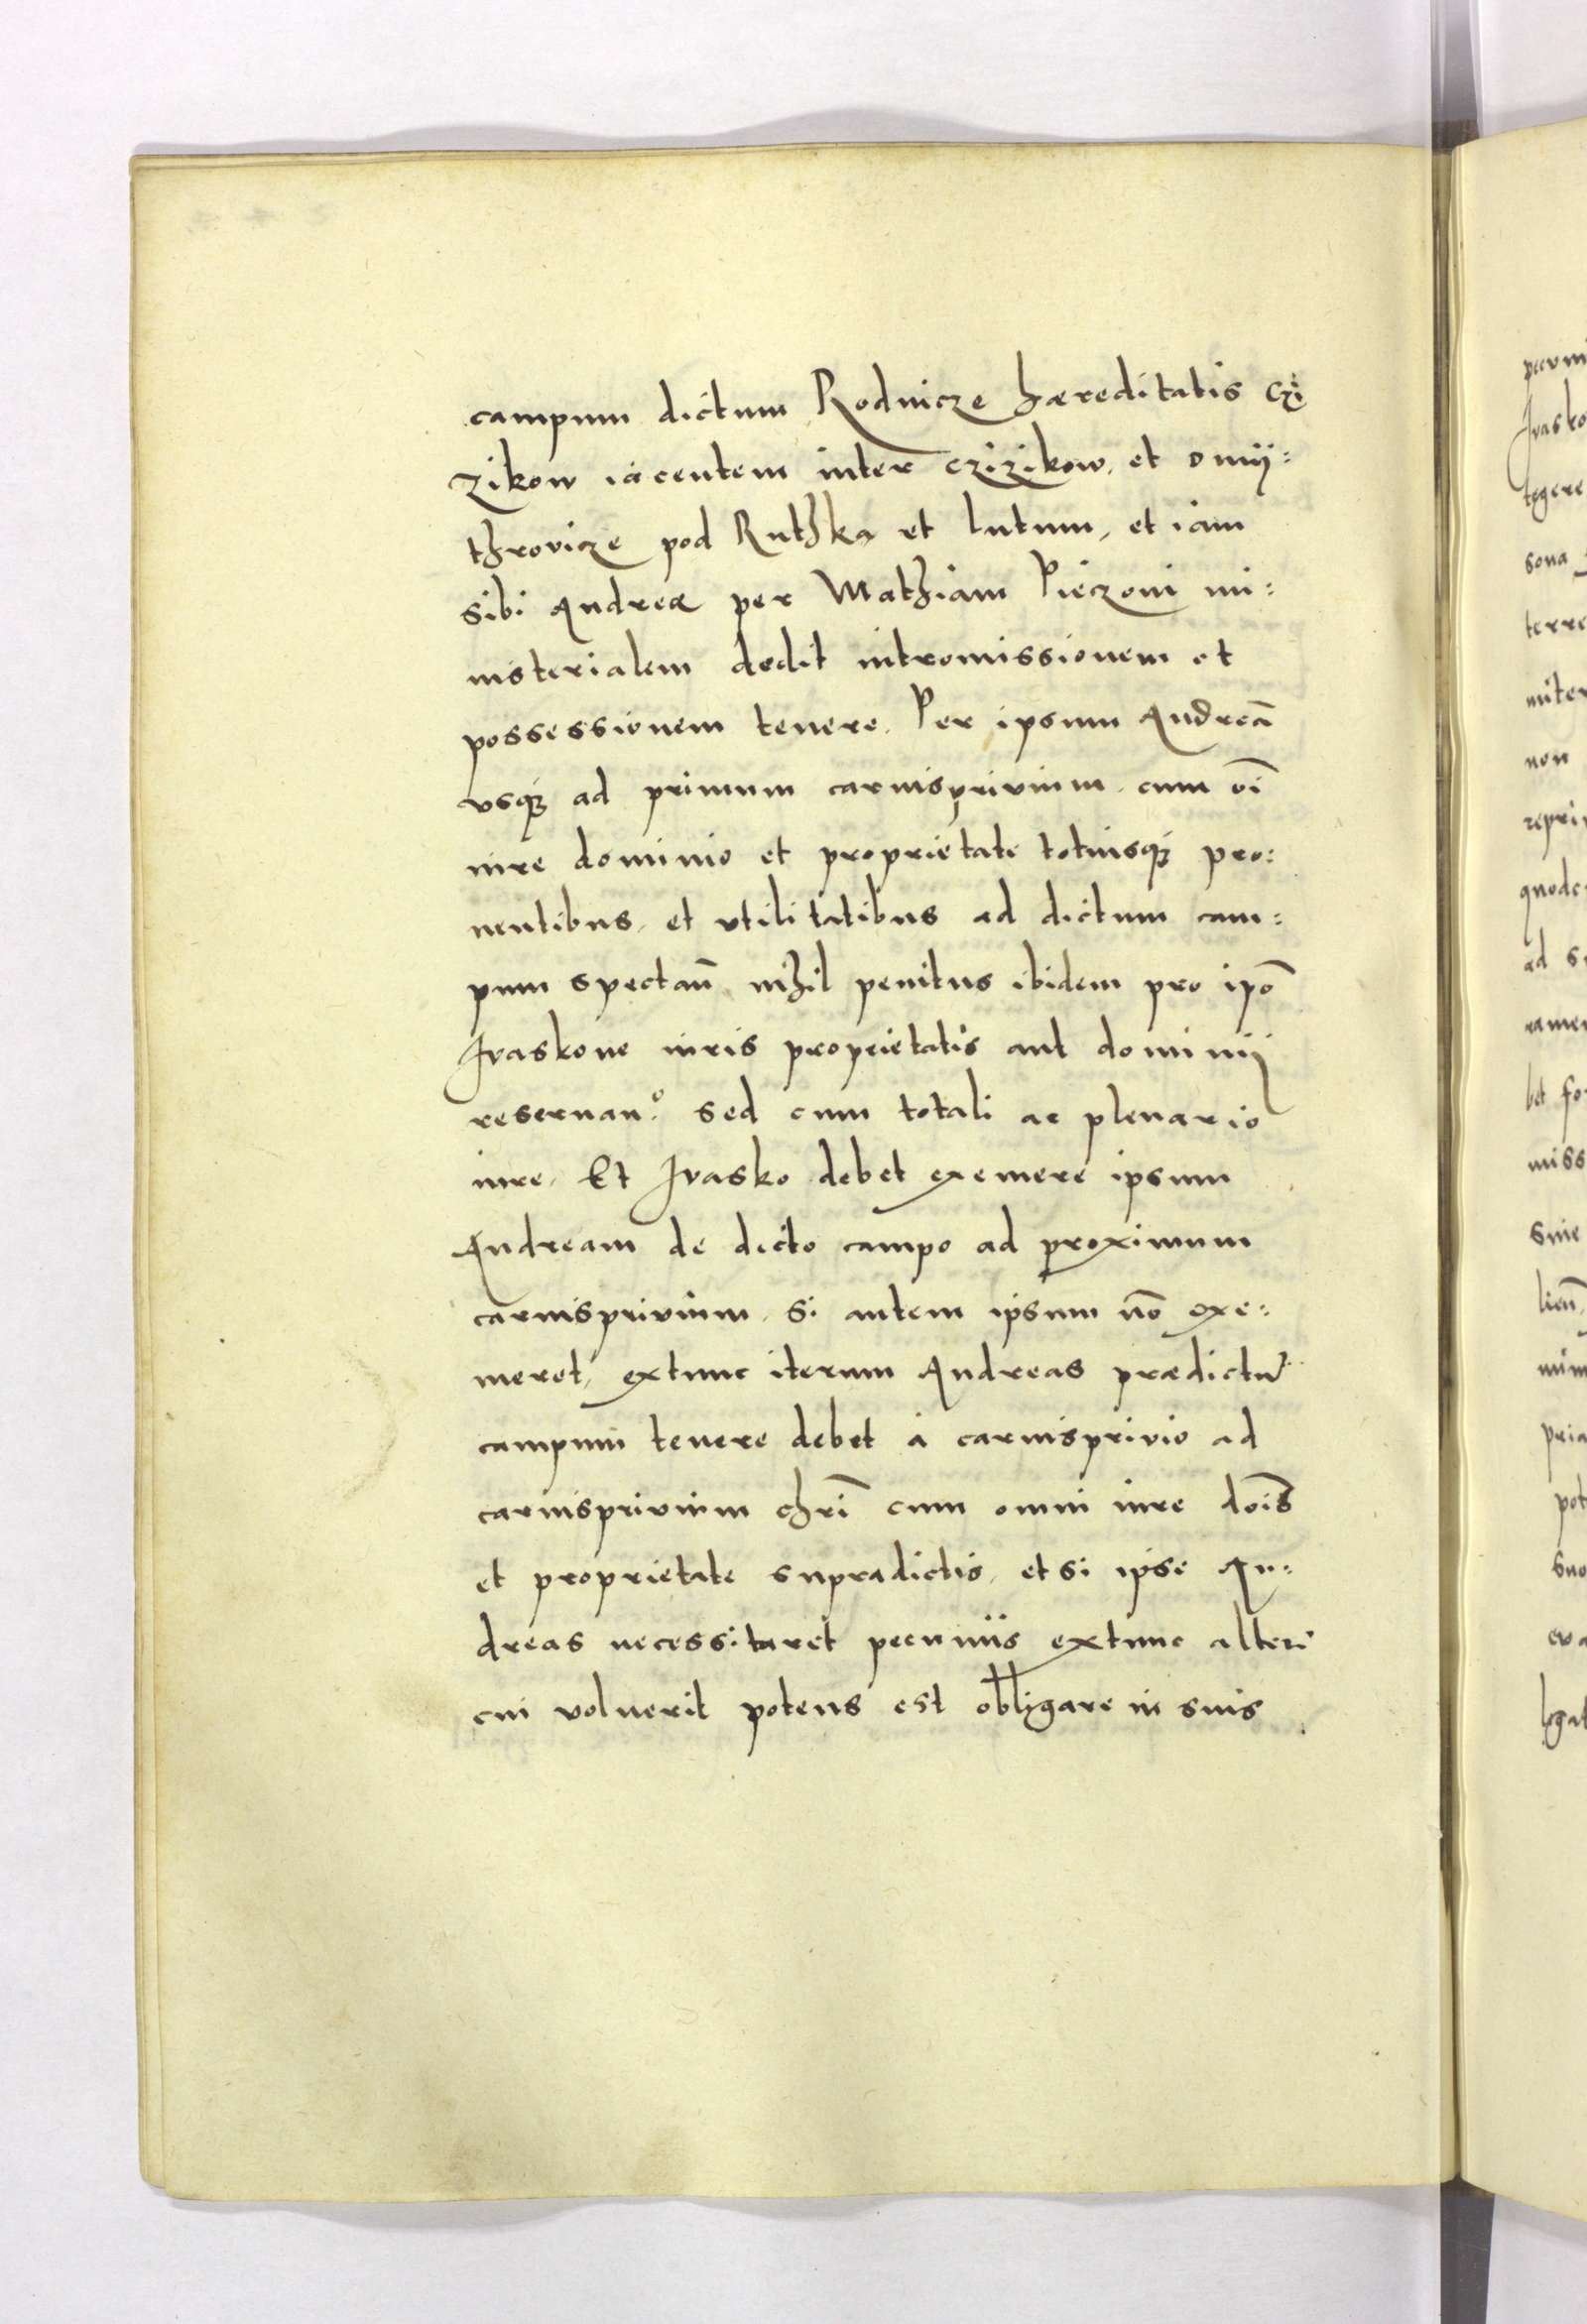 campum dictum Rodnicze hæreditatis Czi
zikow iacentem inter Czizikow, et Dmij:
throvicze pod Ruthka et lutum, et iam
sibi Andreæ per Mathiam Pieczoni mi:
nisterialem dedit intromissionem et
possessionem tenere. Per ipsum Andreā
vsq3 ad primum carnisprivium cum oī
iure dominio et proprietate totuisq3 pro:
nentibus, et vtilitatibus ad dictum cam:
pum spectan̄ nihil penitus ibidem pro ipō
Ivaskone iuris proprietatis aut dominij
reseruan.º sed cum totali ac plenario
iure. Et Ivasko debet exemere ipsum
Andream de dicto campo ad proximum
carnisprivium. si autem ipsum nō exe:
meret, extunc iterum Andreas prædictū
campum tenere debet à carnisprivio ad
carnisprivium chrī cum omni iure doīs
et proprietate supradictis, et si ipse An:
dreas necessitaret pecunijs extunc alteri
cui voluerit potens est obligare in suis